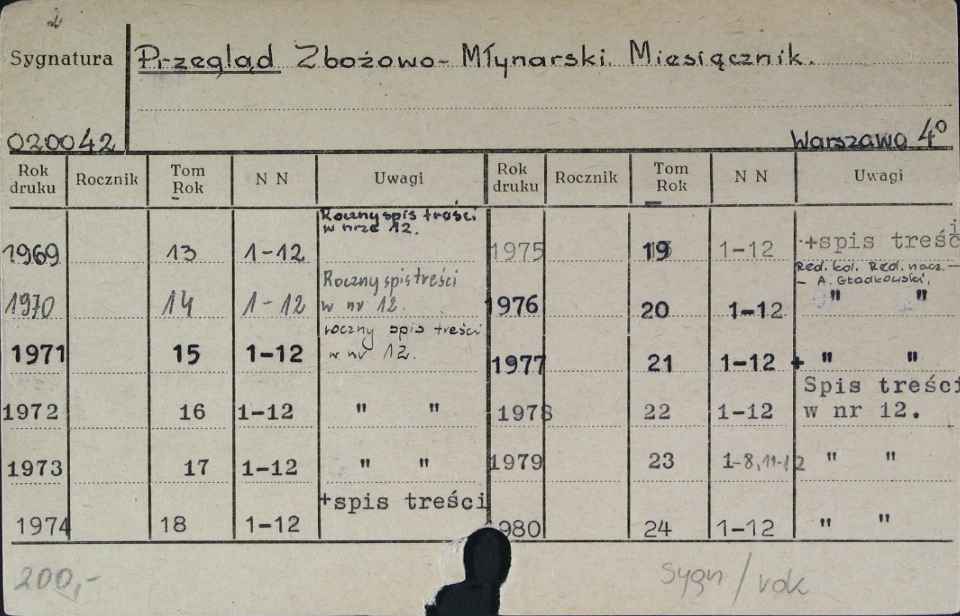 Sygnatura
Przegląd Zbożowo-Młynarski. Miesięcznik.
020042
Warszawa 4°
Rok druku Rocznik Tom Rok N N Uwagi Rok druku Rocznik Tom Rok N N Uwagi
1969 13 1-12 Roczny spis treści w nrze 12.
1970 14 1-12 Roczny spis treści w nr 12.
1971 15 1-12 roczny spis treści w nr 12.
1972 16 1-12 " "
1973 17 1-12 " "
1974 18 1-12 +spis treści
1975 19 1-12 +spis treści
Red. kol. Red. nacz. - A. Gładkowski,
1976 20 1-12 " "
1977 21 1-12 + " "
1978 22 1-12 Spis treści w nr 12.
1979 23 1-8, 11-12 " "
980 24 1-12 " "
200,-
sygn/rok